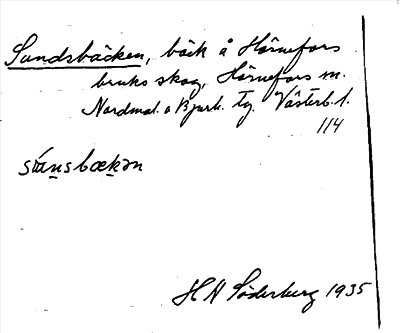 Sundsbäcken, bäck å Hörnefors
bruks skog, Hörnefors m.
Nordmal. o Bjurh. tg. Västerb. l.
114
sʉ́nsbækən
H N Söderberg 1935